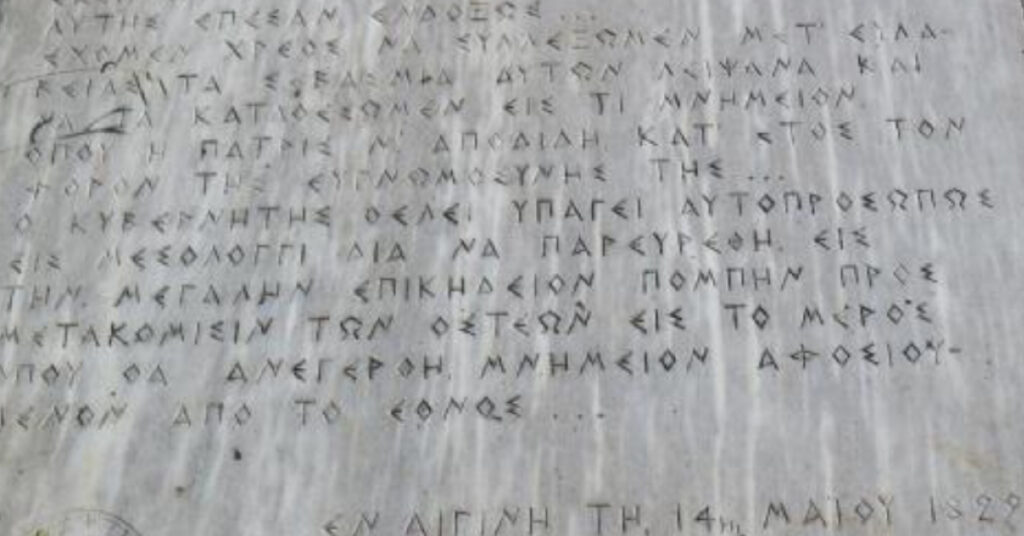 ΑΥΤΗΣ ΕΠΕΣΑΝ ΕΝΔΟΞΩΣ ...
ΕΧΩΜΕΝ ΧΡΕΟΣ ΝΑ ΣΥΛΛΕΞΩΜΕΝ ΜΕΤ' ΕΥΛΑ-
ΣΕΒΑΣΜΙΑ ΑΥΤΩΝ ΛΕΙΨΑΝΑ ΚΑΙ
ΚΑΤΑΘΕΣΩΜΕΝ ΕΙΣ ΤΙ ΜΝΗΜΕΙΟΝ
ΟΠΟΥ Η ΠΑΤΡΙΣ Ν' ΑΠΟΔΙΔΗ ΚΑΤ' ΕΤΟΣ ΤΟΝ
ΦΟΡΟΝ ΤΗΣ ΕΥΓΝΩΜΟΣΥΝΗΣ ΤΗΣ ...
Ο ΚΥΒΕΡΝΗΤΗΣ ΘΕΛΕΙ ΥΠΑΓΕΙ ΑΥΤΟΠΡΟΣΩΠΩΣ
ΕΙΣ ΜΕΣΟΛΟΓΓΙ ΔΙΑ ΝΑ ΠΑΡΕΥΡΕΘΗ, ΕΙΣ
ΤΗΝ ΜΕΓΑΛΗΝ ΕΠΙΚΗΔΕΙΟΝ ΠΟΜΠΗΝ ΠΡΟΣ
ΜΕΤΑΚΟΜΙΣΙΝ ΤΩΝ ΟΣΤΕΩΝ ΕΙΣ ΤΟ ΜΕΡΟΣ
ΟΠΟΥ ΘΑ ΑΝΕΓΕΡΘΗ, ΜΝΗΜΕΙΟΝ ΑΦΟΣΙΟΥ-
ΜΕΝΟΝ ΑΠΟ ΤΟ ΕΘΝΟΣ ...
ΕΝ ΑΙΓΙΝΗ ΤΗ, 14η, ΜΑΪΟΥ 1829